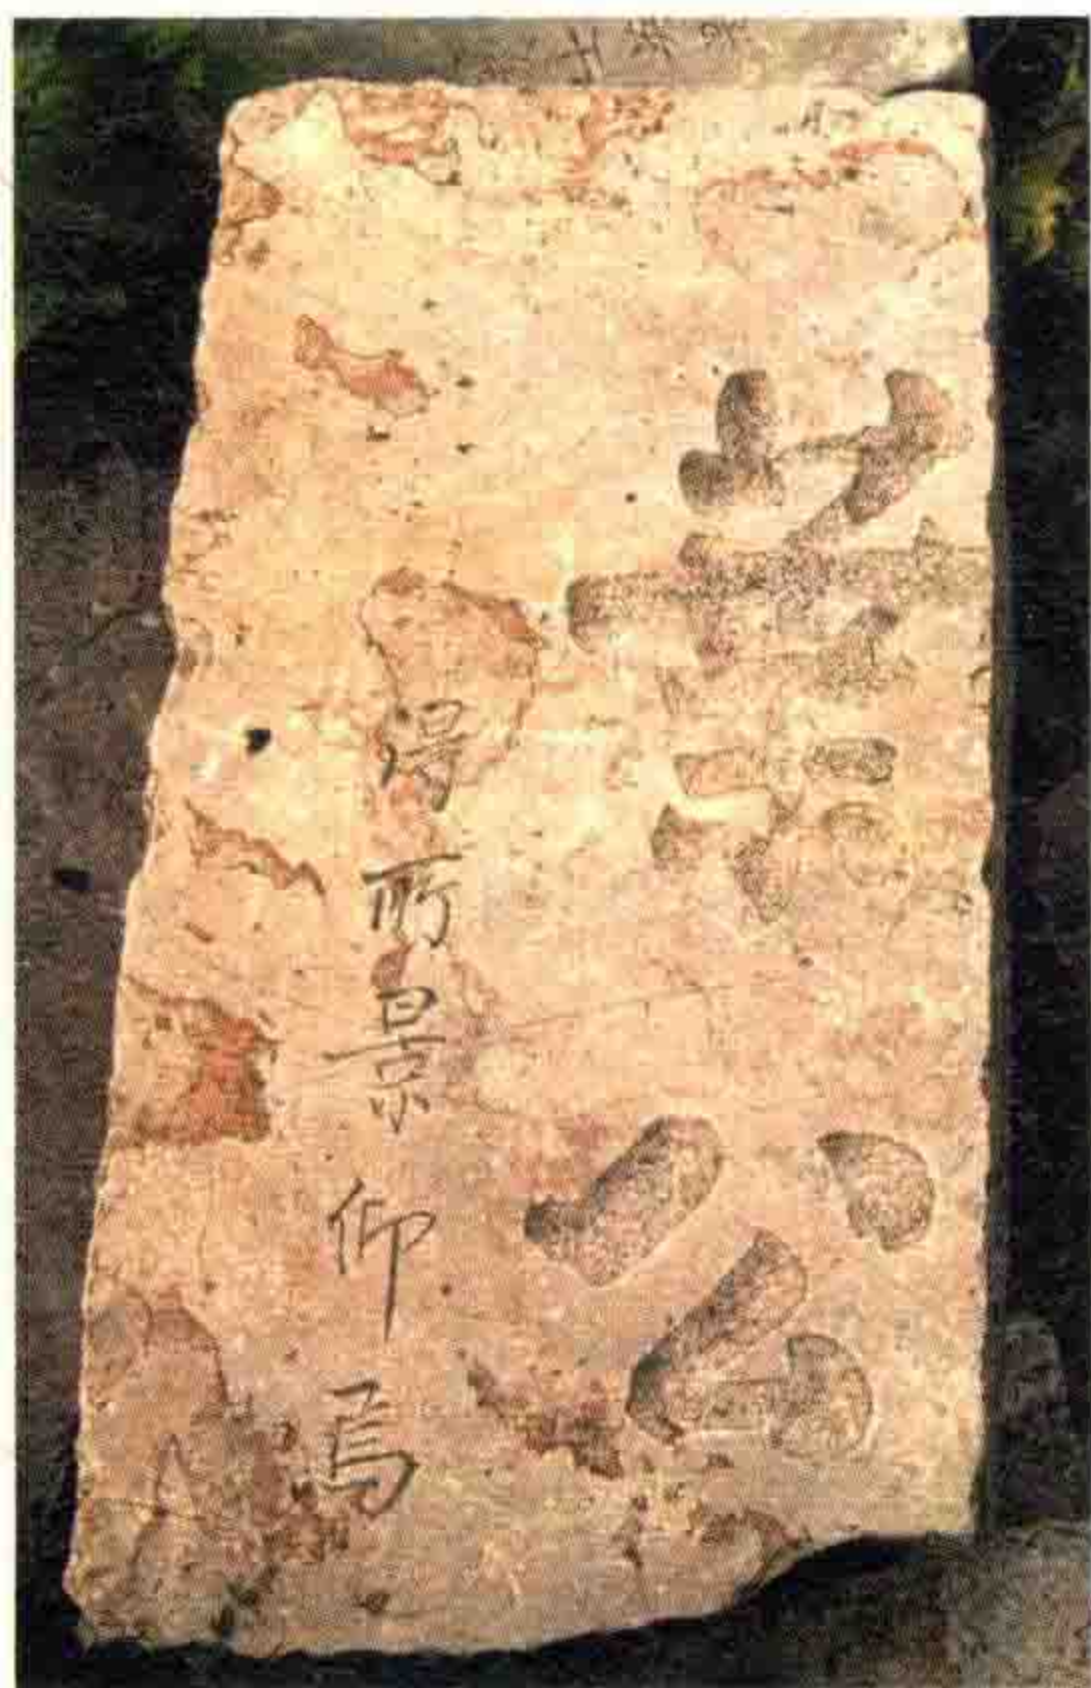 公
得所景仰焉